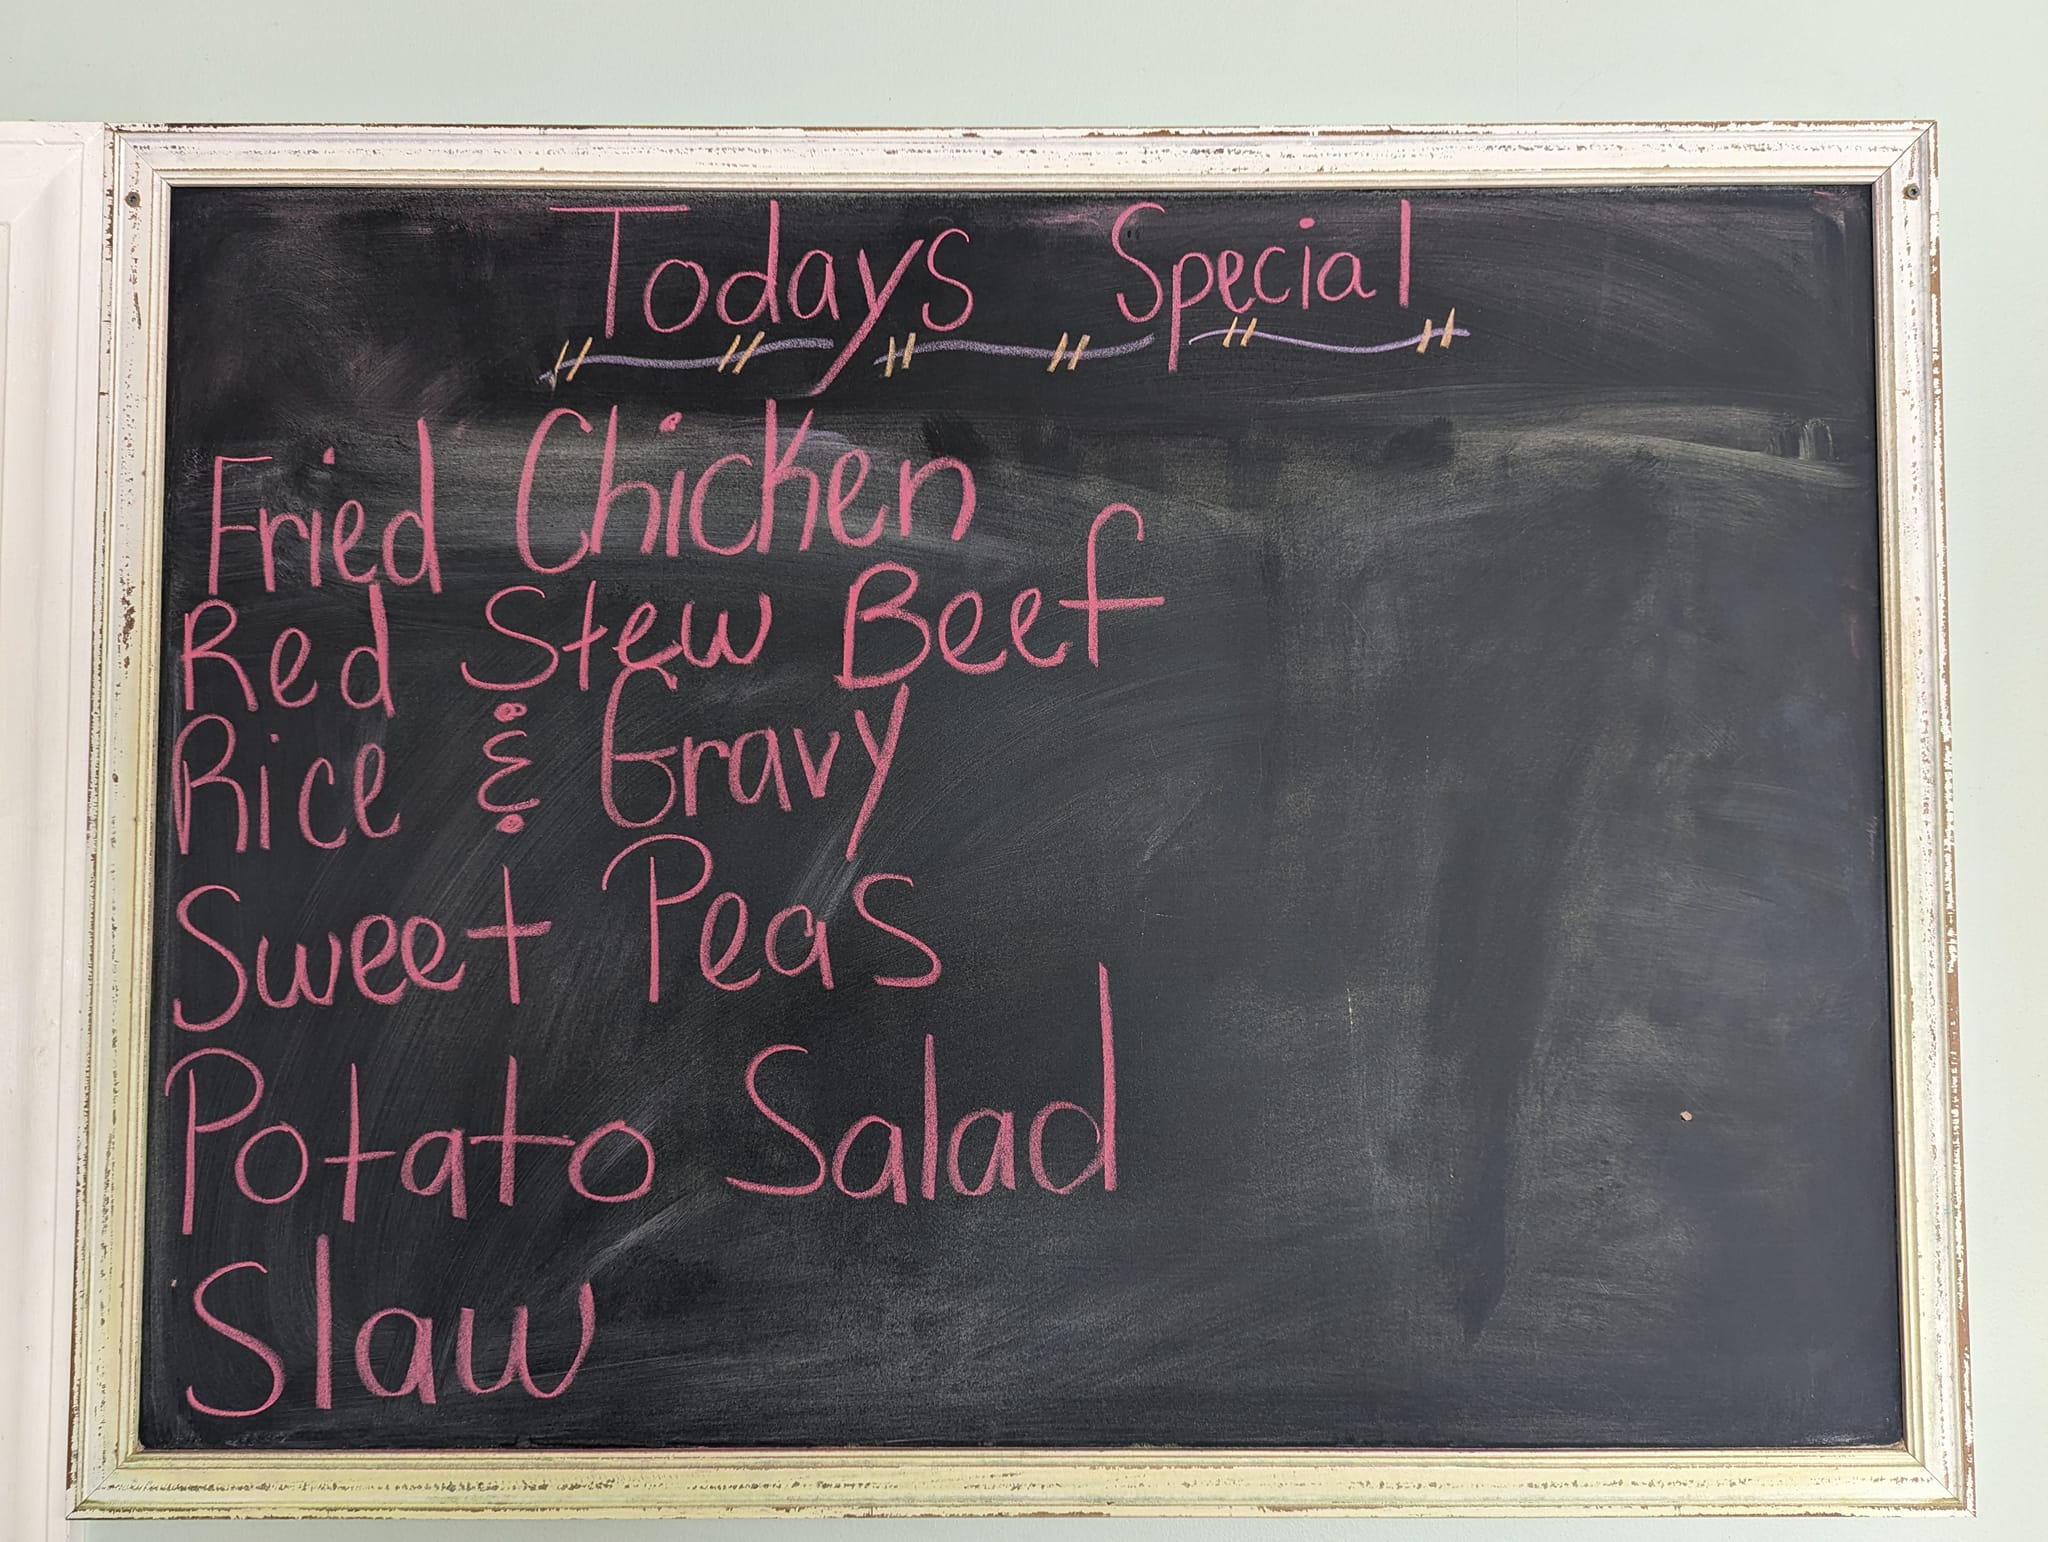 Todays Special
Fried Chicken
Red Stew Beef
Rice & Gravy
Sweet Peas
Potato Salad
Slaw